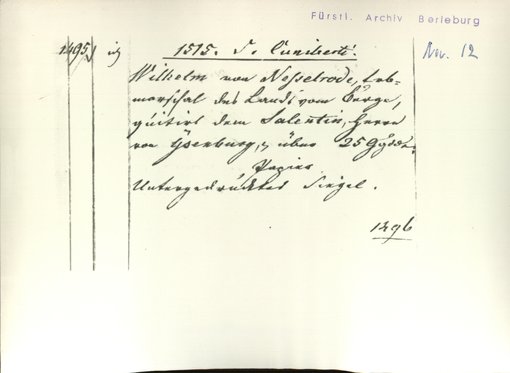 Fürstl. Archiv Berleburg
Nov. 12
1495. 1515. S. Cuniberti.
Wilhelm von Nesselrode, Erb-
marschal des Lands vom Berge,
quitirt dem Salentin, Herrn
von Ysenburg, über 25 Gulden
Papier
Untergedrücktes Siegel.
1496